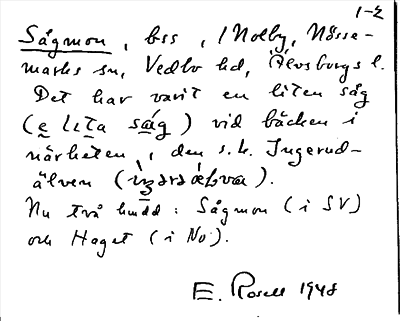 1-2
Sågmon, bss, i Nolby, Nösse-
marks sn, Vedbo hd, Älvsborgs l.
Det har varit en liten såg
(e lita såg) vid bäcken i
närheten, den s.k. Ingerud-
älven ().
Nu två hmdd: Sågmon (i SV)
och Haget (i No).
E. Rosell 1948